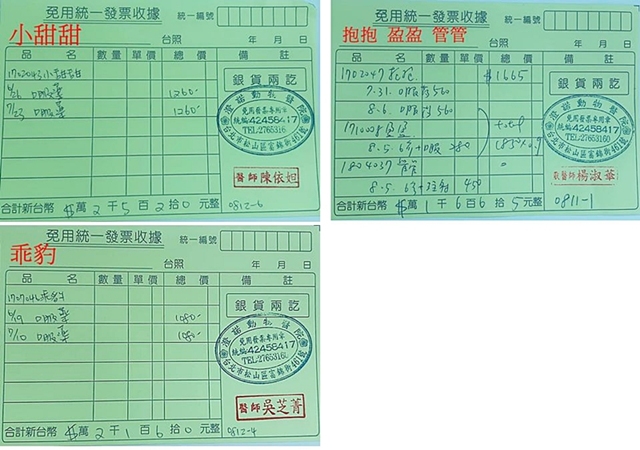 免用統一發票收據 統一編號
小甜甜 台照 年 月 日
品 名 數量 單價 總價 備 註
1702043小甜甜
6/26 口服藥 1260-
7/23 口服藥 1260-
銀貨兩訖
澄諾動物醫院
免用發票專用章
統編42458417
台北市松山區富錦街461號
醫師 陳依姮
合計新台幣 萬 2 千 5 百 2 拾 0 元整 0812-6
免用統一發票收據 統一編號
抱抱 盈盈 管管 台照 年 月 日
品 名 數量 單價 總價 備 註
1702047抱抱 $1665
7.31. 口服藥560
8.6. 口服藥560
total
1850×0.9
1804037 管管
450
銀貨兩訖
免用發票專用章
統編42458417
TEL:27653160
台北市松山區富錦街461號
獸醫師 楊淑華
合計新台幣 萬 1 千 6 百 6 拾 5 元整 0811-1
免用統一發票收據 統一編號
乖豹 台照 年 月 日
品 名 數量 單價 總價 備 註
6/19 口服藥 1080-
7/10 口服藥 1080-
銀貨兩訖
澄諾動物醫院
免用發票專用章
統編42458417
TEL:27653160
台北市松山區富錦街461號
醫師 吳芝菁
合計新台幣 萬 2 千 1 百 6 拾 0 元整 0812-4